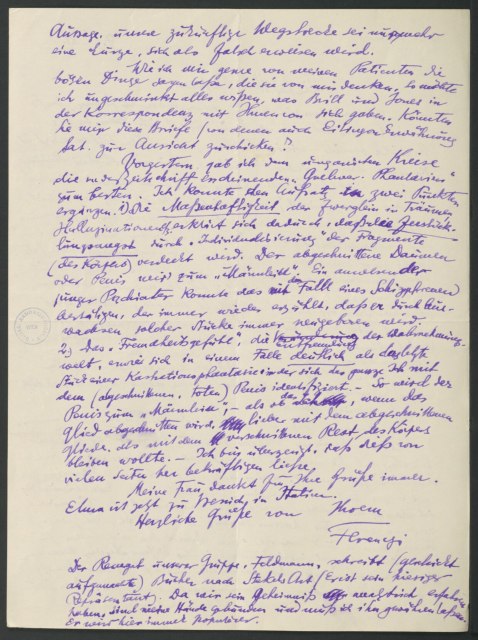 Aussage, unsere zukünftige Wegstrecke sei nunmehr
eine kurze, sich als falsch erweisen wird.
Wie ich mir gerne von meinen Patienten die
bösen Dinge sagen lasse, die sie von mir denken, so möchte
ich ungeschminkt alles wissen, was Brill und Jones in
der Korrespondenz mit Ihnen von sich gaben. Könnten
Sie mir diese Briefe (von denen auch Eitingon Erwähnung
tat, zur Ansicht zuschicken?
Vorgestern gab ich dem ungarischen Kreise
die in der Zeitschrift erscheinenden „Gulliver-Phantasien"
zum besten. Ich konnte den Aufsatz in zwei Punkten
ergänzen. 1) Die Massenhaftigkeit der Zwerglein in Träumen,
Halluzinationen etc. erklärt sich dadurch, daß die Zerstück-
lungsangst durch „Individualisierung der Fragmente
(des Körpers) verdeckt wird. Der abgeschnittene Daumen
oder Penis wird zum „Männlein". Ein anwesender
junger Psychiater konnte das mit dem Fall eines Schizophrenen
bestätigen, der immer wieder erzählt, daß er durch
solcher Stücke immer neugeboren wird.
2) Das „Fremdheitsgefühl", die der Wahrnehmungs-
welt, erwies sich in einem Falle deutlich als das letzte
Stück einer Kastrationsphantasie in der sich das ganze Ich mit
dem (abgeschnittenen, toten) Penis identifiziert. – So wird der
Penis zum „Männlein", – als ob das Ich, wenn das
Glied abgeschnitten wird, lieber mit dem abgeschnittenen
Gliede, als mit dem verschnittenen Rest des Körpers
bleiben wollte. – Ich bin überzeugt, daß dieß von
vielen Seiten her bekräftigen ließe.
Meine Frau dankt für Ihre Grüße immer.
Elma ist jetzt zu Besuch in Italien.
Herzliche Grüße von Ihrem
Ferenczi
Der Renegat unserer Gruppe, Feldmann, schreibt (geschickt
aufgemachte) Bücher nach Stekels Art (Er ist sein hiesiger
Repräsentant). Da wir sein Geheimniß erfahren
haben, sind meine Hände gebunden und muß ich ihn gewähren lassen.
Er wird hier immer populärer.